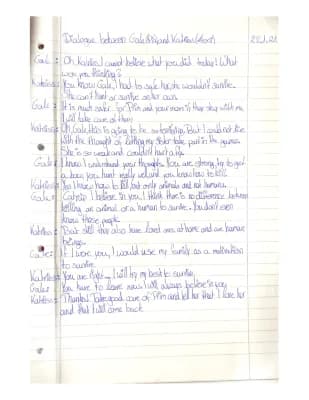 Dialogue between Gale and Katniss (door) 22.1.21
Gale: Oh Katniss I cannot believe what you did today! What
were you thinking?
Katniss: You know Gale, I had to safe her, she wouldn't survive.
She can't hunt or survive on her own.
Gale: It is much safer for Prim and your mom if they stay with me,
I will take care of them
Katniss: Oh Gale, this is going to be so But I could not live
with the thought of letting my sister take part in the games.
She is so weak and couldn't hurt a fly.
Gale: I know I understand your thoughts. You are strong, try to get
a bow, you hunt really well and you know how to kill.
Katniss: Yes I know how to kill but only animals and not humans.
Gale: Catnip I believe in you! I think there is no difference between
killing an animal or a human to survive. You don't even
know those people.
Katniss: But still they also have loved ones at home and are human
beings.
Gale: If I were you, I would use my family as a motivation
to survive.
Katniss: You are right I will try my best to survive.
Gale: You have to leave now. I will always believe in you
Katniss: Thanks! Take good care of Prim and tell her that I love her
and that I will come back